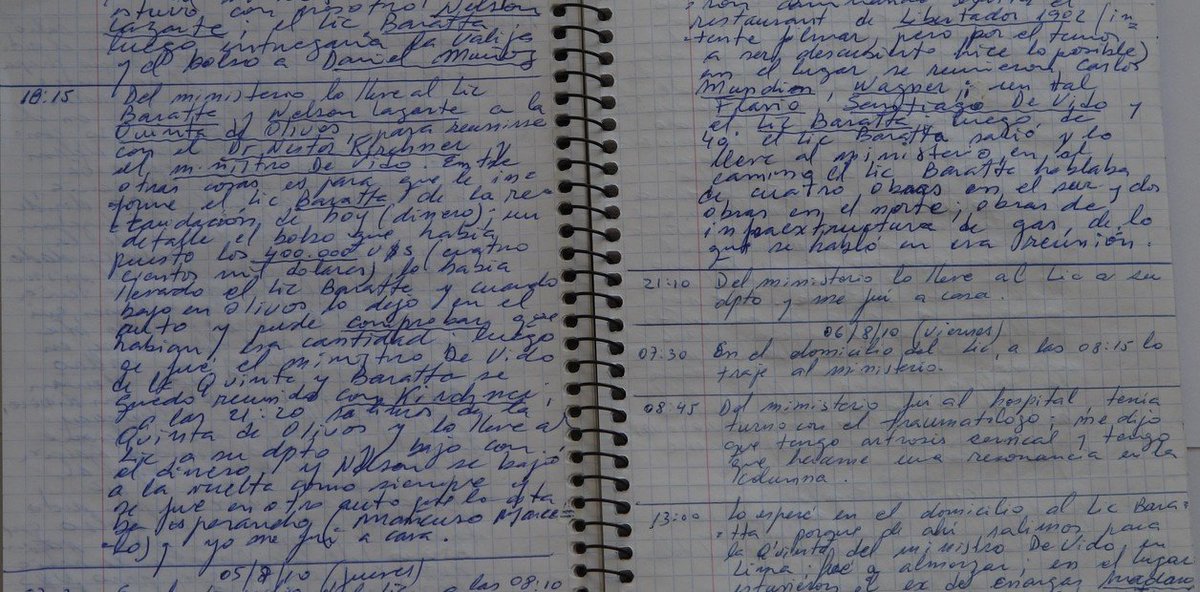 estuvo con nosotros Nelson
Lazarte; el Lic Baratta
luego entregaría la Valija
y el bolso a Daniel Muñoz
18:15 Del ministerio lo lleve al Lic
Baratta y Nelson Lazarte a la
Quinta de Olivos, para reunirse
con el Dr Nestor Kirchner y
el ministro De Vido. Entre
otras cosas es para que le in
forme el Lic Baratta, de la re=
caudación de hoy (dinero); un
detalle el bolso que había
puesto los 400.000 U$S (cuatro
cientos mil dolares) lo había
llevado el Lic Baratta y cuando
bajo en Olivos lo dejo en el
auto y pude comprobar que
habian esa cantidad luego
se fue el ministro De Vido
de la Quinta y Baratta se
quedo reunido con Kirchner,
a las 21:20 salimos de la
Quinta de Olivos y lo lleve al
Lic a su dpto y bajo con
el dinero, y Nelson se bajó
a la vuelta como siempre y
se fue en otro auto que lo esta
ba esperando (
y yo me fui a casa.
05/8/10 (jueves)
a las 08:10
restaurant de Libertador 1902 (in=
tente filmar, pero por el temor
a ser descubierto hice lo posible)
en el lugar se reunieron Carlos
Mundin, Wagner; un tal
Flavio Santiago De Vido y
el Lic Baratta. Luego de
40 el Lic Baratta salió y lo
lleve al ministerio, en el
camino el Lic Baratta hablaba
de cuatro obras en el sur y dos
obras en el norte; obras de
infraextructura de gas, de lo
que se habló en esa reunión.
21:10 Del ministerio lo lleve al Lic a su
dpto y me fui a casa.
06/8/10 (viernes)
07:30 En el domicilio del Lic, a las 08:15 lo
traje al ministerio.
08:45 Del ministerio fui al hospital tenia
turno con el traumatilogo; me dijo
que tengo artrosis cervical y tengo
que hacerme una resonancia en la
columna.
13:00 Lo esperé en el domicilio al Lic Bara=
tta porque de ahi salimos para
la Quinta del ministro De Vido en
Lima; fue a almorzar; en el lugar
estuvieron el ex de enargas Madaro